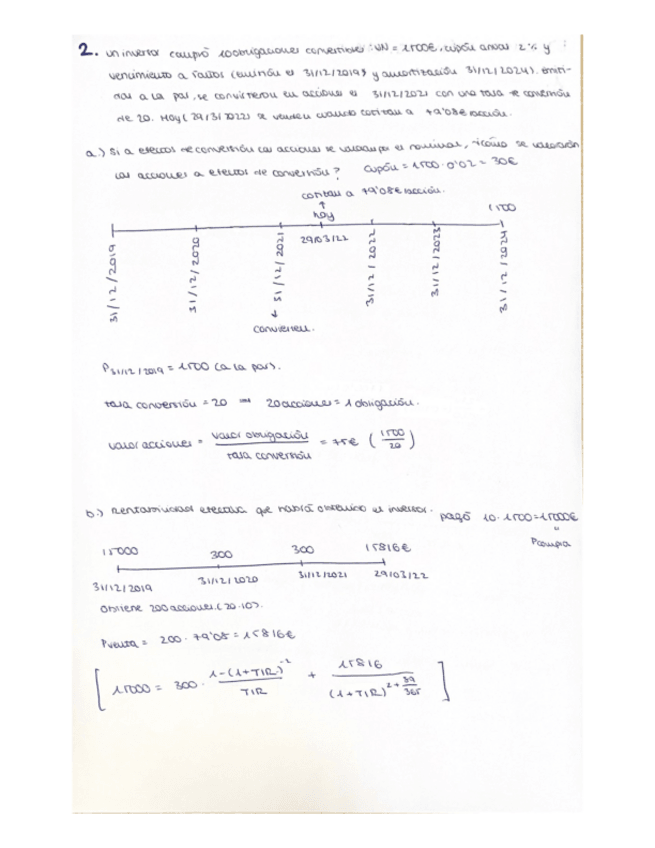 2. un inversor compró 10 obligaciones convertibles: VN = 1500€, cupón anual 2% y
vencimiento a 5 años (emisión el 31/12/2019 y amortización 31/12/2024). emiti-
das a la par, se convirtieron en acciones el 31/12/2021 con una tasa de conversión
de 20. Hoy (29/3/2022) se venden cuando cotizan a 79'08€/acción.
a.) Si a efectos de conversión las acciones se valoran por el nominal, ¿cómo se valorarán
las acciones a efectos de conversión? cupón = 1500 · 0'02 = 30€
cotizan a 79'08€/acción.
↑
hoy 1500
31/12/2019 31/12/2020 31/12/2021 29/03/22 31/12/2022 31/12/2023 31/12/2024
convierten.
P31/12/2019 = 1500 (a la par).
tasa conversión = 20 ⟹ 20 acciones = 1 obligación.
valor acciones = valor obligación / tasa conversión = 75€ (1500/20)
b.) Rentabilidad efectiva que habrá obtenido el inversor. pagó 10 · 1500 = 15000€
"
Pcompra
15000 300 300 15816€
31/12/2019 31/12/2020 31/12/2021 29/03/22
Obtiene 200 acciones (20·10).
Pventa = 200 · 79'08 = 15816€
[15000 = 300 · 1-(1+TIR)^-2 / TIR + 15816 / (1+TIR)^2+89/365]